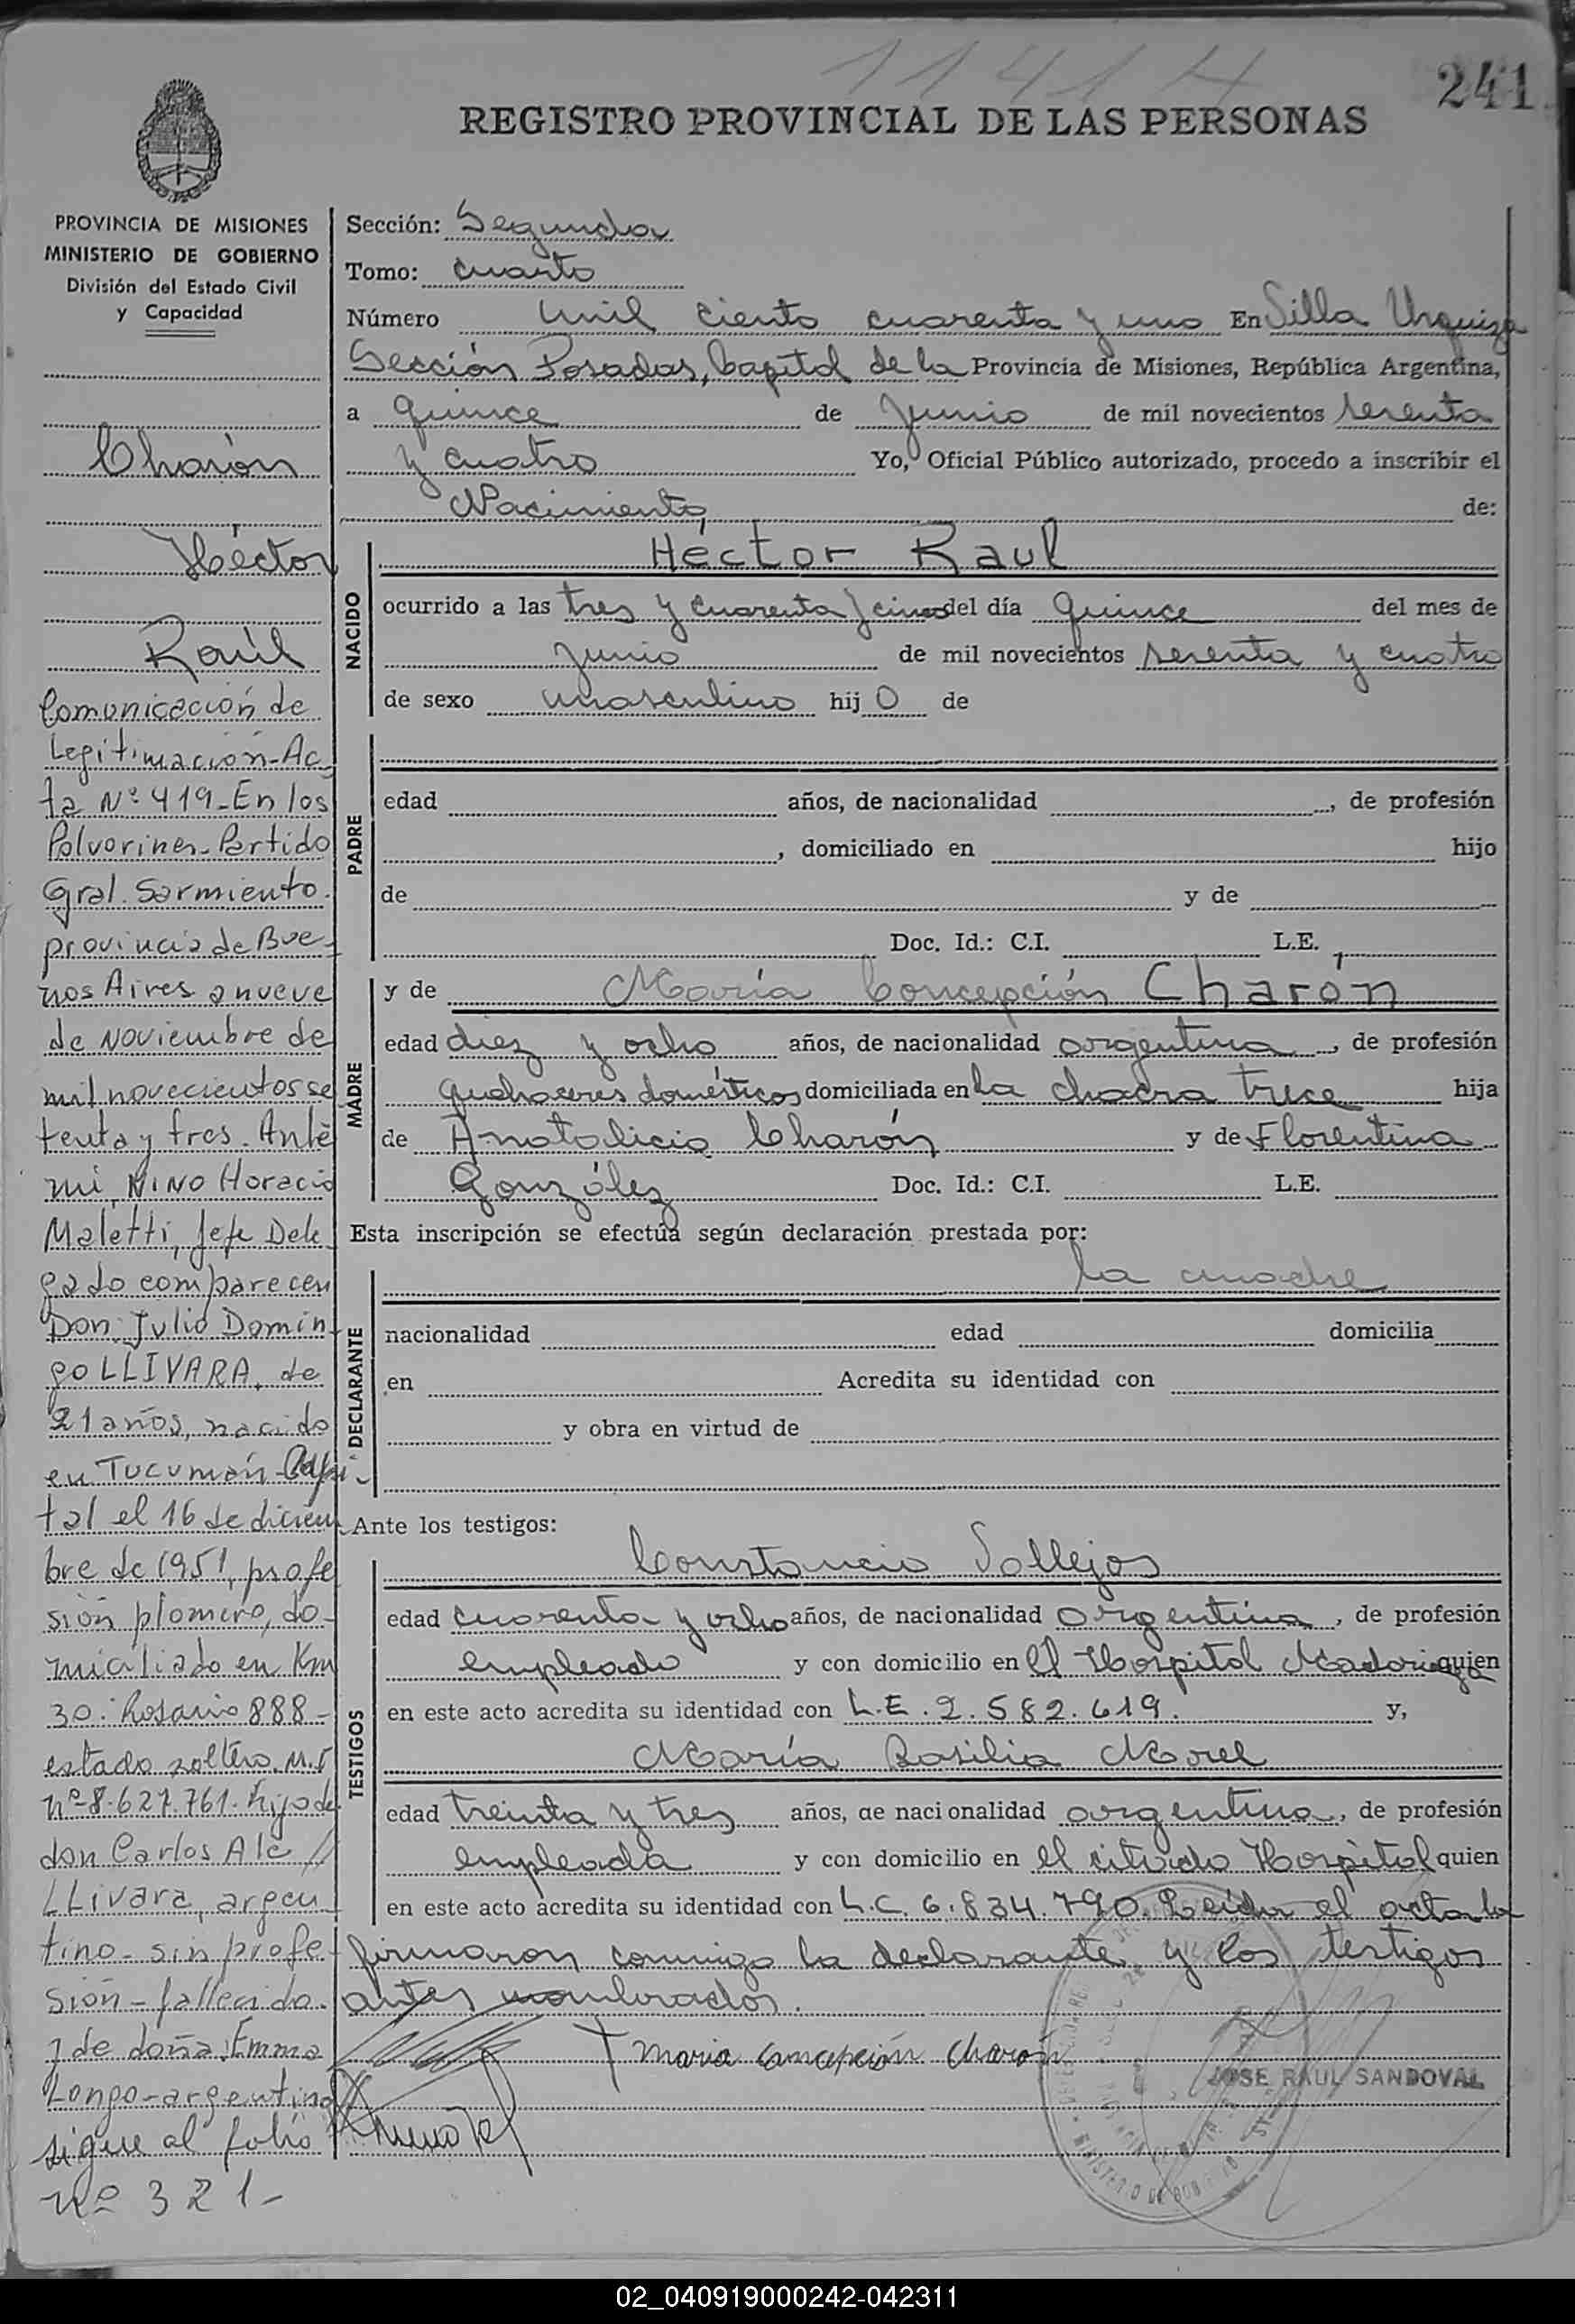 11414
241
REGISTRO PROVINCIAL DE LAS PERSONAS
PROVINCIA DE MISIONES
MINISTERIO DE GOBIERNO
División del Estado Civil
y Capacidad
Charón
Héctor
Raúl
Comunicación de
Legitimación-Ac
ta Nº 419-En los
Polvorines-Partido
Gral. Sarmiento.
provincia de Bue-
nos Aires a nueve
de noviembre de
mil novecientos se
tenta y tres. Ante
mi, NINO Horacio
Maletti, Jefe Dele
gado comparecen
Don Julio Domin
go LLIVARA, de
21 años, nacido
en Tucumán-Capi-
tal el 16 de diciem
bre de 1951, profe
sión plomero, do-
miciliado en Km
30. Rosario 888-
estado soltero. M.I
nº 8.627.761. hijo de
don Carlos Ale
LLivara, argen
tino-sin profe-
sión-fallecido.
y de doña Emma
Longo-argentina
sigue al folio
nº 321-
Sección: Segunda
Tomo: cuarto
Número mil ciento cuarenta y uno En Villa Urquiza
Sección Posadas, Capital de la Provincia de Misiones, República Argentina,
a quince de Junio de mil novecientos sesenta
y cuatro Yo, Oficial Público autorizado, procedo a inscribir el
Nacimiento de:
NACIDO
Héctor Raul
ocurrido a las tres y cuarenta y cinco del día quince del mes de
Junio de mil novecientos sesenta y cuatro
de sexo masculino hij o de
PADRE
edad años, de nacionalidad , de profesión
, domiciliado en hijo
de y de
Doc. Id.: C.I. L.E.
MADRE
y de María Concepción Charón
edad diez y ocho años, de nacionalidad argentina, de profesión
quehaceres domésticos domiciliada en la chacra trece hija
de Anatalicio Charón y de Florentina
González Doc. Id.: C.I. L.E.
Esta inscripción se efectúa según declaración prestada por:
la madre
DECLARANTE
nacionalidad edad domicilia
en Acredita su identidad con
y obra en virtud de
Ante los testigos:
TESTIGOS
Constancio Vallejos
edad cuarenta y ocho años, de nacionalidad argentina, de profesión
empleado y con domicilio en el Hospital Madariaga quien
en este acto acredita su identidad con L.E. 2.582.619. y,
María Basilia Morel
edad treinta y tres años, de nacionalidad argentina, de profesión
empleada y con domicilio en el citado Hospital quien
en este acto acredita su identidad con L.C. 6.834.790. Leida el acta la
firmaron conmigo la declarante y los testigos
antes nombrados.
Maria Concepción Charón
JOSE RAUL SANDOVAL
02_040919000242-042311